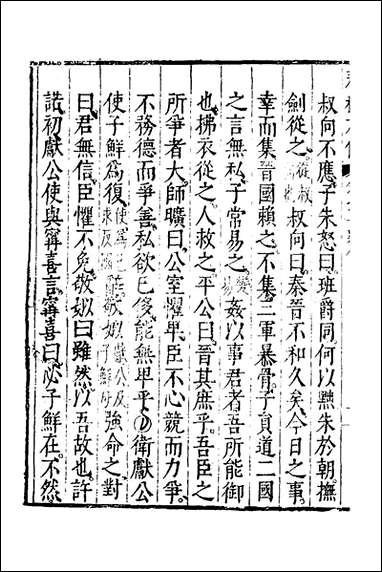 叔向不應子朱怒曰班爵同何以黜朱於朝撫
劍從之叔向曰秦晉不和久矣今日之事
幸而集晉國賴之不集三軍暴骨子員道二國
之言無私子常易之姦以事君者吾所能御
也拂衣從之人救之平公曰晉其庶乎吾臣之
所爭者大師曠曰公室懼卑臣不心競而力爭
不務德而爭善私欲已侈能無卑乎〇衛獻公
使子鮮爲復辭敬姒強命之對
曰君無信臣懼不免敬姒曰雖然以吾故也許
諾初獻公使與甯喜言甯喜曰必子鮮在不然